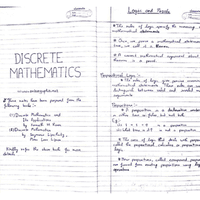 DISCRETE
MATHEMATICS
# These notes have been prepared from the
following books :-
(1) Discrete Mathematics and
Its Applications
by Kenneth H. Rosen
(2) Discrete Mathematics
by Seymour Lipschutz,
Marc Lars Lipson
Kindly refer the above books for more
details.
Logic and Proofs
The rules of logic specify the meaning of
mathematical statements.
Once we prove a mathematical statement
true, we call it a theorem.
A correct mathematical argument about
theorem is a proof.
Propositional Logic :-
The rules of logic give precise meaning
to mathematical statements. These rules are used
distinguish between valid and invalid mathematical
arguments
Proposition :-
A proposition is a declarative sentence
either true or false, but not both.
Eg :
is a proposition
is not a proposition
The area of logic that deals with propositions
called the propositional calculus or propositional
logic.
New propositions, called compound propositions
are formed from existing propositions using logical
operators.